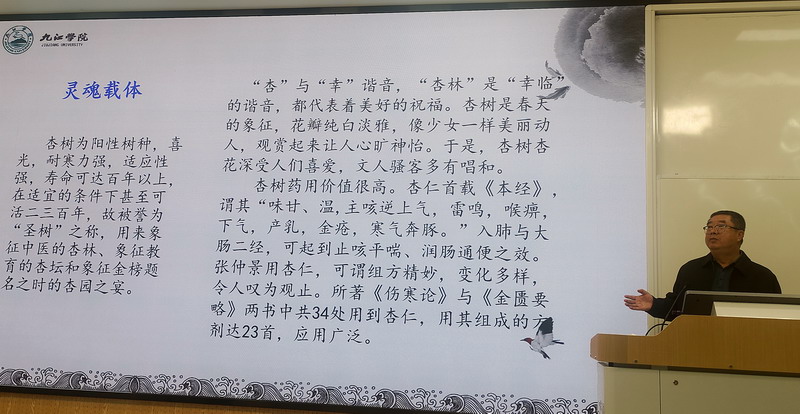 九江学院
JIUJIANG UNIVERSITY
灵魂载体
杏树为阳性树种，喜
光，耐寒力强，适应性
强，寿命可达百年以上，
在适宜的条件下甚至可
活二三百年，故被誉为
“圣树”之称，用来象
征中医的杏林、象征教
育的杏坛和象征金榜题
名之时的杏园之宴。
“杏”与“幸”谐音，“杏林”是“幸临”
的谐音，都代表着美好的祝福。杏树是春天
的象征，花瓣纯白淡雅，像少女一样美丽动
人，观赏起来让人心旷神怡。于是，杏树杏
花深受人们喜爱，文人骚客多有唱和。
杏树药用价值很高。杏仁首载《本经》，
谓其“味甘、温,主咳逆上气，雷鸣，喉痹，
下气，产乳，金疮，寒气奔豚。”入肺与大
肠二经，可起到止咳平喘、润肠通便之效。
张仲景用杏仁，可谓组方精妙，变化多样，
令人叹为观止。所著《伤寒论》与《金匮要
略》两书中共34处用到杏仁，用其组成的方
剂达23首，应用广泛。